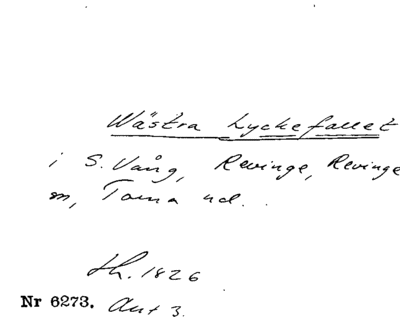 Wästra Lyckefallet
i S. Vång, Revinge, Revinge
sn, Torna hd.
Lh. 1826
Nr 6273. Akt 3.